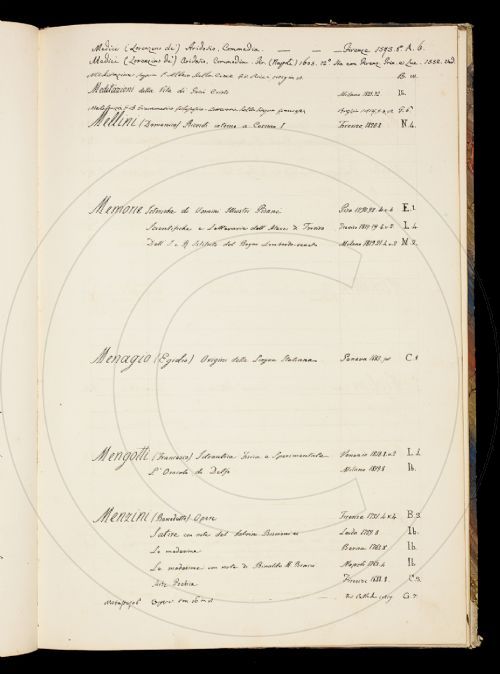 Medici (Lorenzino de') Aridosio, Commedia. — — — Firenze 1593. 8° A. 6.
Medici (Lorenzino de') Aridosio, Commedia. (Napoli) 1605. 12°
B.
Meditazioni della Vita di Gesù Cristo Milano 1823. Ib.
Mellini (Domenico) Ricordi intorno a Cosimo I Firenze 1820.8 N. 4.
Memorie Istoriche di Uomini Illustri Pisani Pisa 1790.92. 4 v. 4 E. 1
Scientifiche e Letterarie dell' Ateneo di Treviso Treviso 1817.19 4. v. 2 L. 4
Dell' I. e R. Istituto del Regno Lombardo-veneto Milano 1819.21 4. v. 2 N. 2.
Menagio (Egidio) Origini della Lingua Italiana Geneva 1685. fol. C. 1
Mengotti (Francesco) Idraulica Fisica e Sperimentale Venezia 1828.8. v. 2 I. 2.
L'Oracolo di Delfo Milano 1819.8 Ib.
Menzini (Benedetto) Opere Firenze 1731. 4. v. 4 B. 3.
Satire con note del Salvini Leida 1759.8 Ib.
Le medesime Berna 1763.8 Ib.
Le medesime con note di Rinaldo M. Bracci Napoli 1763.4 Ib
Arte Poetica Firenze 1688.8 C. 3.
Opere G. 7.